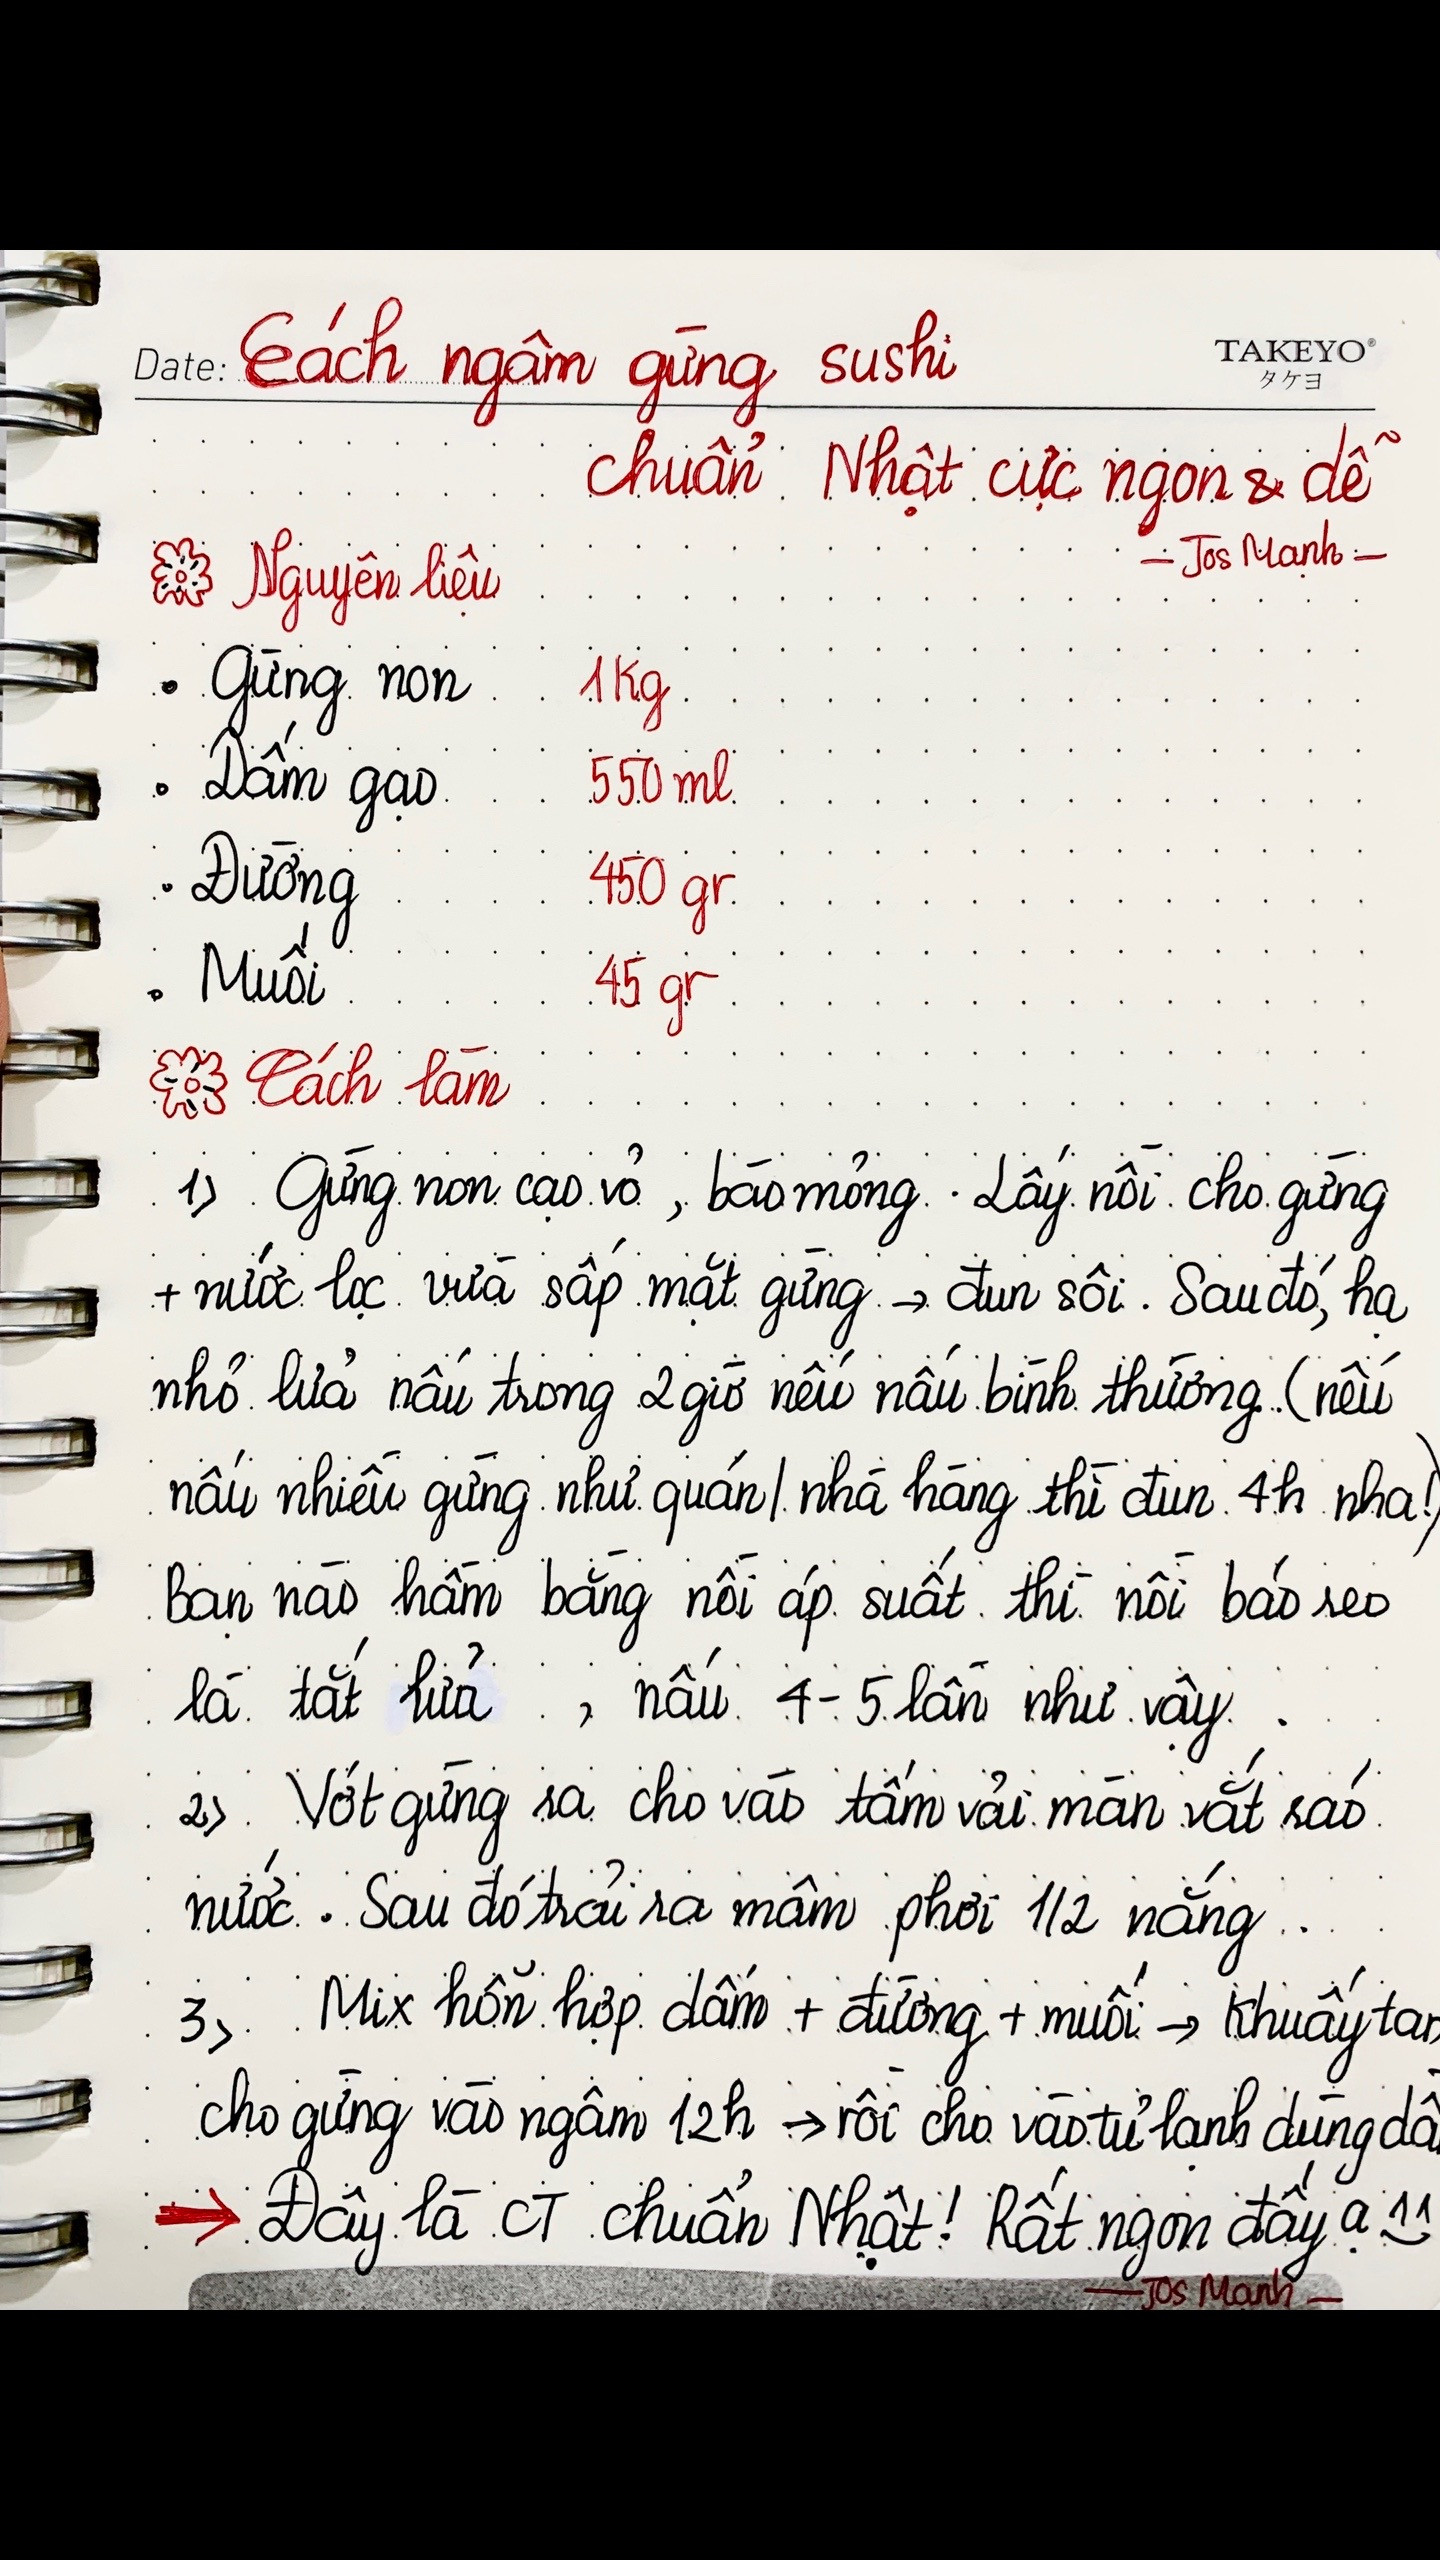 Date: Cách ngâm gừng sushi
TAKEYO®
タケヨ
chuẩn Nhật cực ngon & dễ
— Jos Mạnh —
Nguyên liệu
• Gừng non 1Kg
• Dấm gạo 550 ml
• Đường 450 gr
• Muối 45 gr
Cách làm
1) Gừng non cạo vỏ, bào mỏng. Lấy nồi cho gừng
+ nước lọc vừa sấp mặt gừng → đun sôi. Sau đó, hạ
nhỏ lửa nấu trong 2 giờ nếu nấu bình thường. (nếu
nấu nhiều gừng như quán/ nhà hàng thì đun 4h nha!)
Bạn nào hầm bằng nồi áp suất thì nồi báo reo
là tắt lửa, nấu 4-5 lần như vậy.
2) Vớt gừng ra cho vào tấm vải màn vắt ráo
nước. Sau đó trải ra mâm phơi 1/2 nắng..
3) Mix hỗn hợp dấm + đường + muối → Khuấy tan
cho gừng vào ngâm 12h → rồi cho vào tủ lạnh dùng dầ
→ Đây là CT chuẩn Nhật! Rất ngon đấy ạ ^^
— Jos Mạnh —